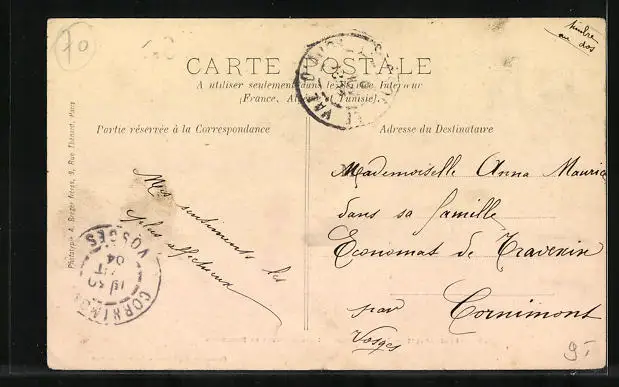 70
timbre
au dos
CARTE POSTALE
A utiliser seulement dans le Service Intérieur
(France, Algérie, Tunisie).
Partie réservée à la Correspondance
Adresse du Destinataire
Phototypie A. Berger frères, 9, Rue Thénard, Paris
Mes sentiments les
plus affectueux
Mademoiselle Anna Mauric
dans sa famille
Economat de Travexin
par Cornimont
Vosges
CORNIMONT
VOSGES
04
9.-